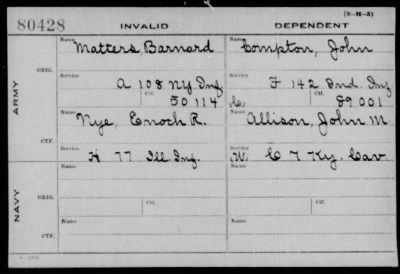 (3-16-5)
80428 INVALID DEPENDENT
Name Matters, Barnard Name Compton, John
ORIG.
Service A 108 NY Inf Service F 142 Ind. Inf
Ctf. 50114 C. Ctf. 89001
ARMY
Name Nye, Enoch R. Name Allison, John M
CTF.
Service K 77 Ill Inf. Service W. C 7 Ky. Cav
Name Name
ORIG.
Service Ctf. Service Ctf.
NAVY
Name Name
CTF.
Service Service